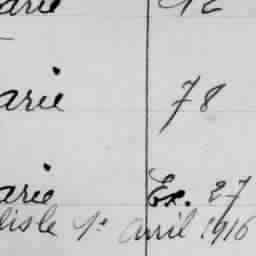 arie 42
arie 78
arie Ex. 27
lisle 1e avril 1916